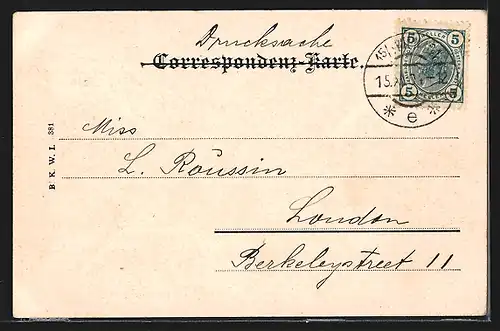 Drucksache
Correspondenz-Karte.
5 5
5 5
15.
* e *
B. K. W. I. 381
Miss
L. Roussin
London
Berkeleystreet 11